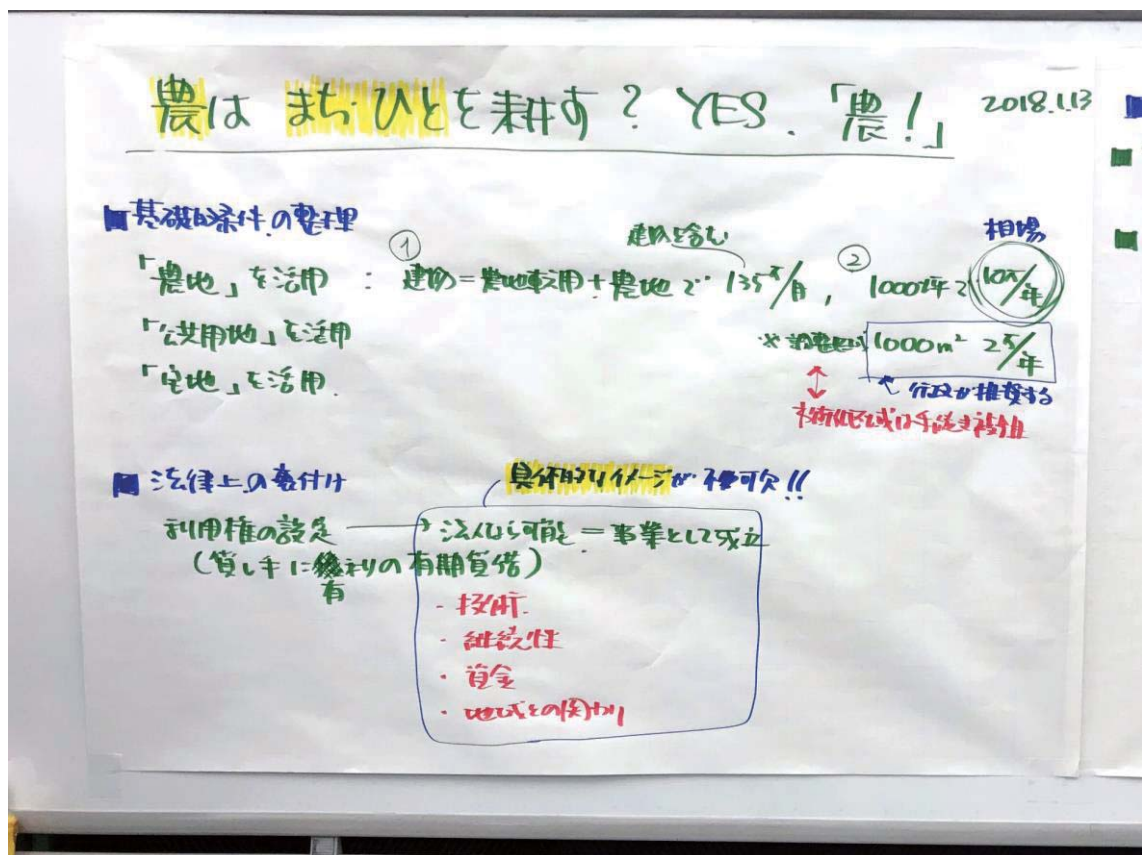 農は まち・ひとを耕す? YES.「農!」
2018.1.13
■基礎的条件の整理
「農地」を活用 : ①建物=農地転用+農地で 135万/月, ②1000坪で 10万/年
建物を含む
相場
「公共用地」を活用
※調整区域 1000m² 2万/年
「宅地」を活用
行政が推奨する
市街化区域は手続き複雑
■法律上の裏付け
具体的なイメージが不可欠!!
利用権の設定 → 法人なら可能=事業として成立
(貸し手に有利の有期賃借)
・技術
・継続性
・資金
・地域との関わり